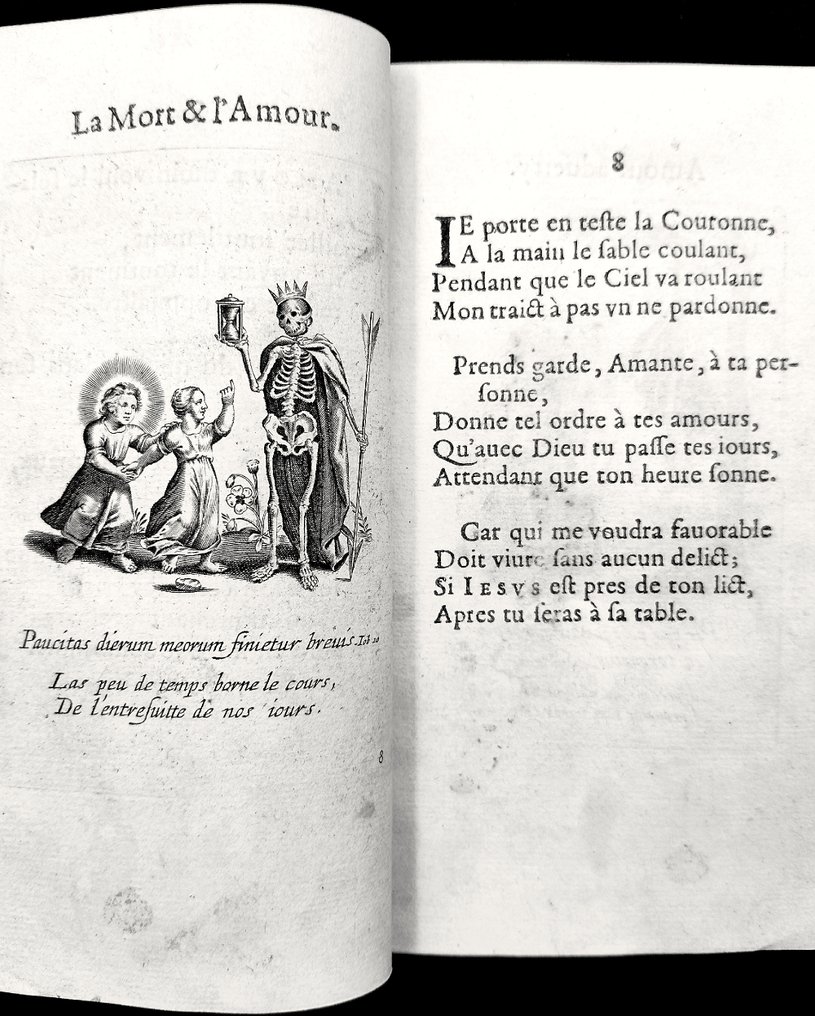 La Mort & l'Amour.
Paucitas dierum meorum finietur breuis. Iob 10
Las peu de temps borne le cours,
De l'entreſuitte de nos iours.
8
8
IE porte en teſte la Couronne,
A la main le ſable coulant,
Pendant que le Ciel va roulant
Mon traict à pas vn ne pardonne.
Prends garde, Amante, à ta per-
ſonne,
Donne tel ordre à tes amours,
Qu'auec Dieu tu paſſe tes iours,
Attendant que ton heure ſonne.
Car qui me voudra fauorable
Doit viure ſans aucun delict;
Si IESVS eſt pres de ton lict,
Apres tu ſeras à ſa table.